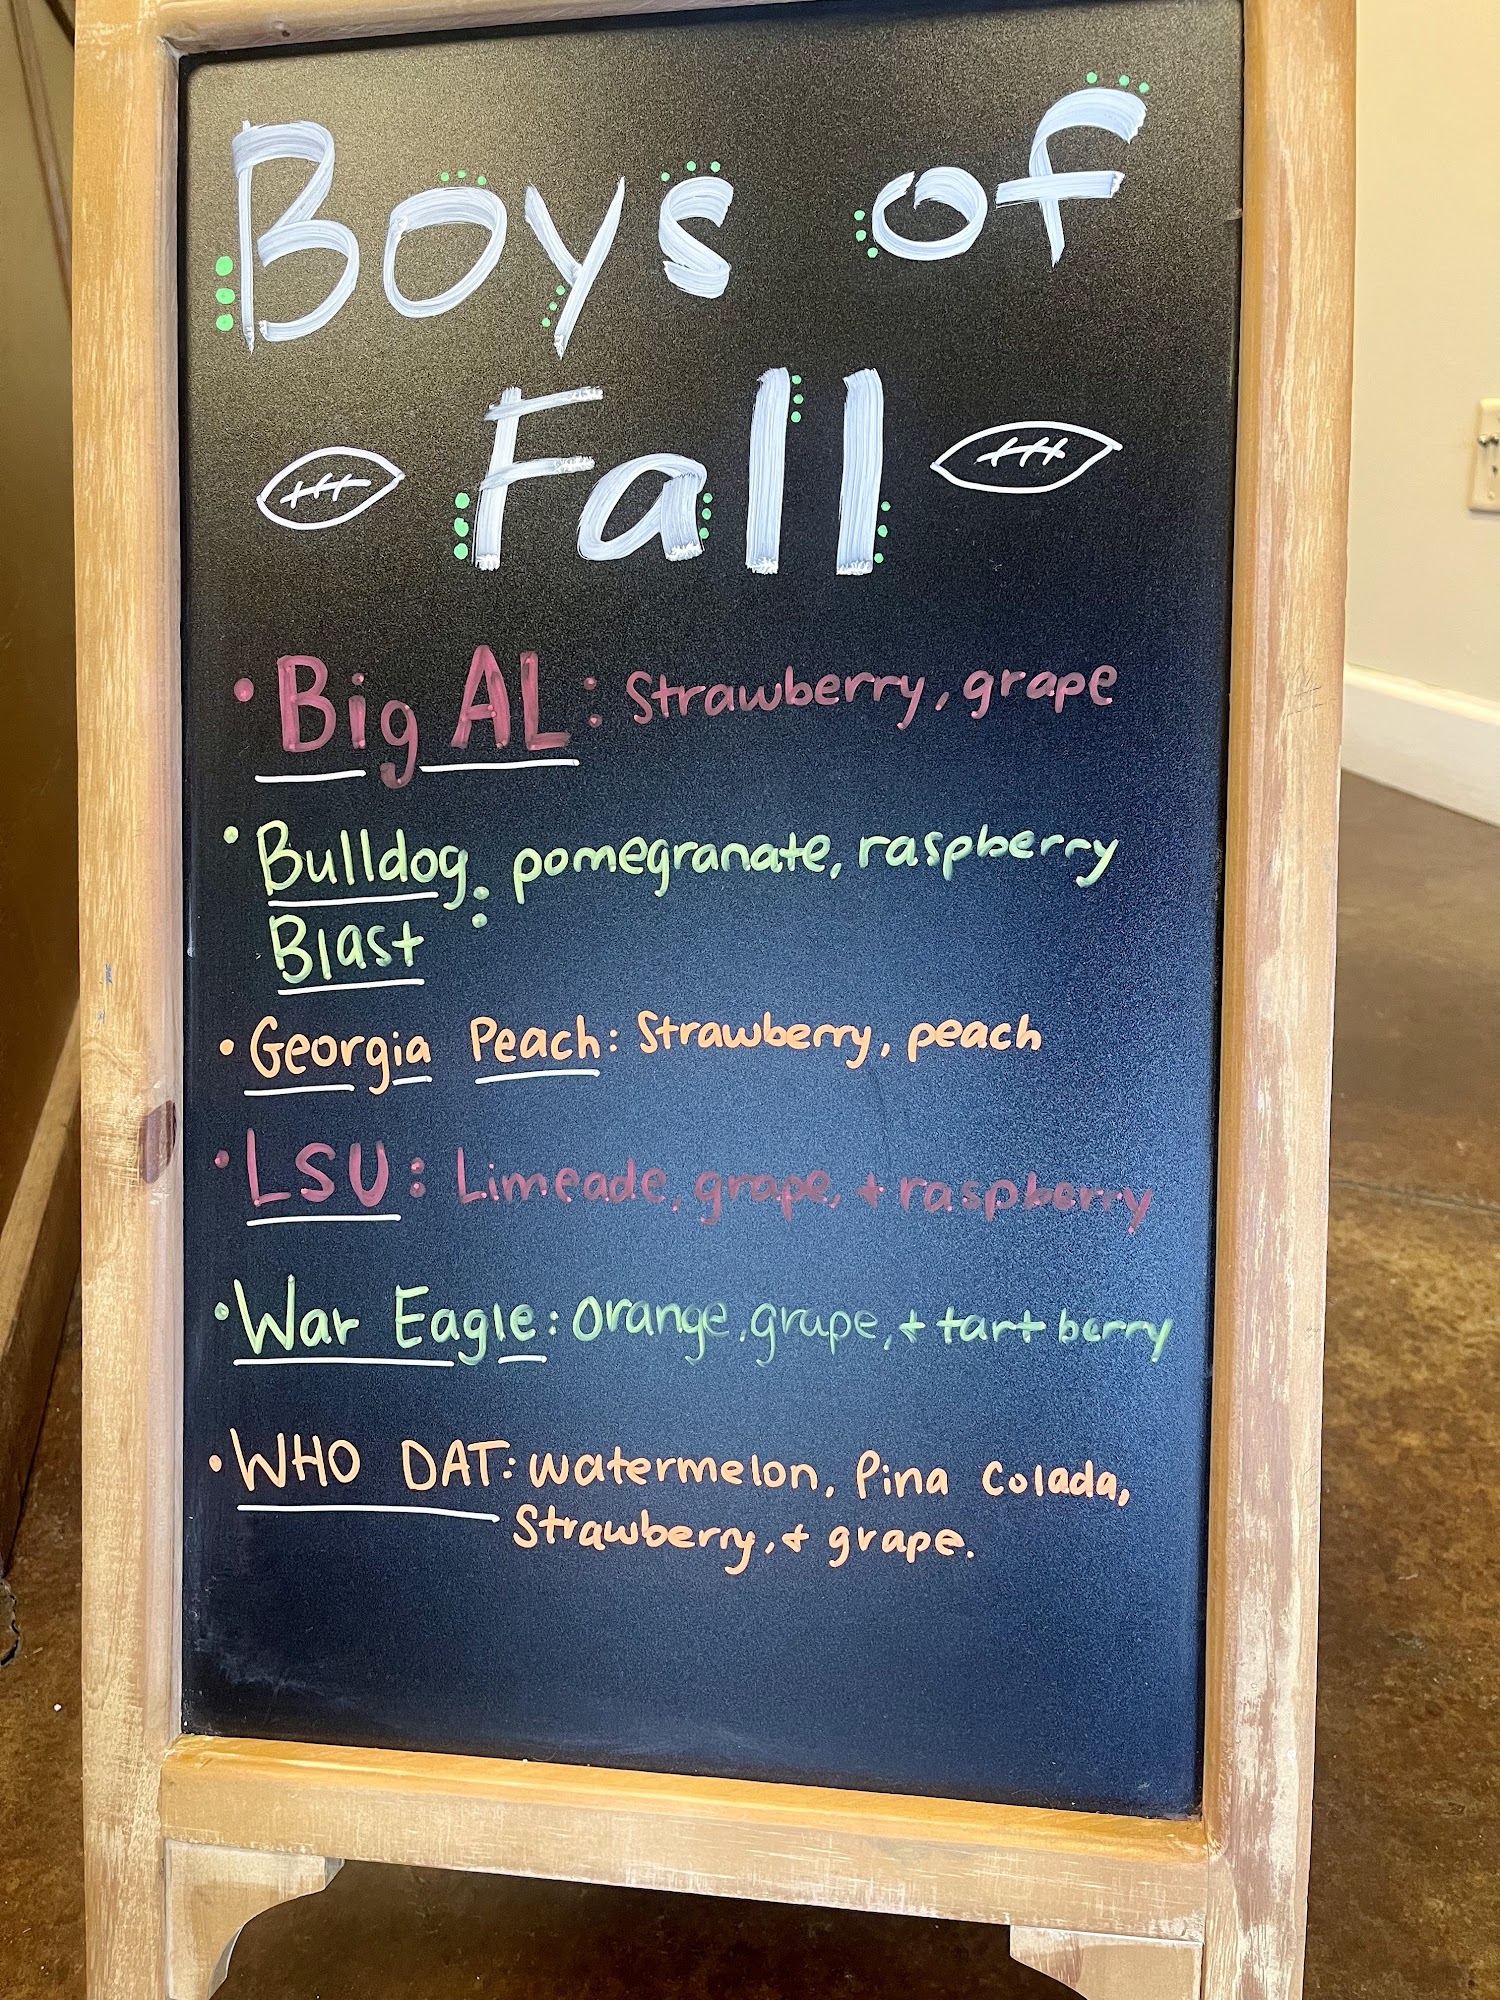 Boys of
Fall
• Big AL: Strawberry, grape
• Bulldog : pomegranate, raspberry
Blast
• Georgia Peach: Strawberry, peach
• LSU: Limeade, grape, + raspberry
• War Eagle: orange, grape, + tart berry
• WHO DAT: watermelon, Pina Colada,
Strawberry, + grape.